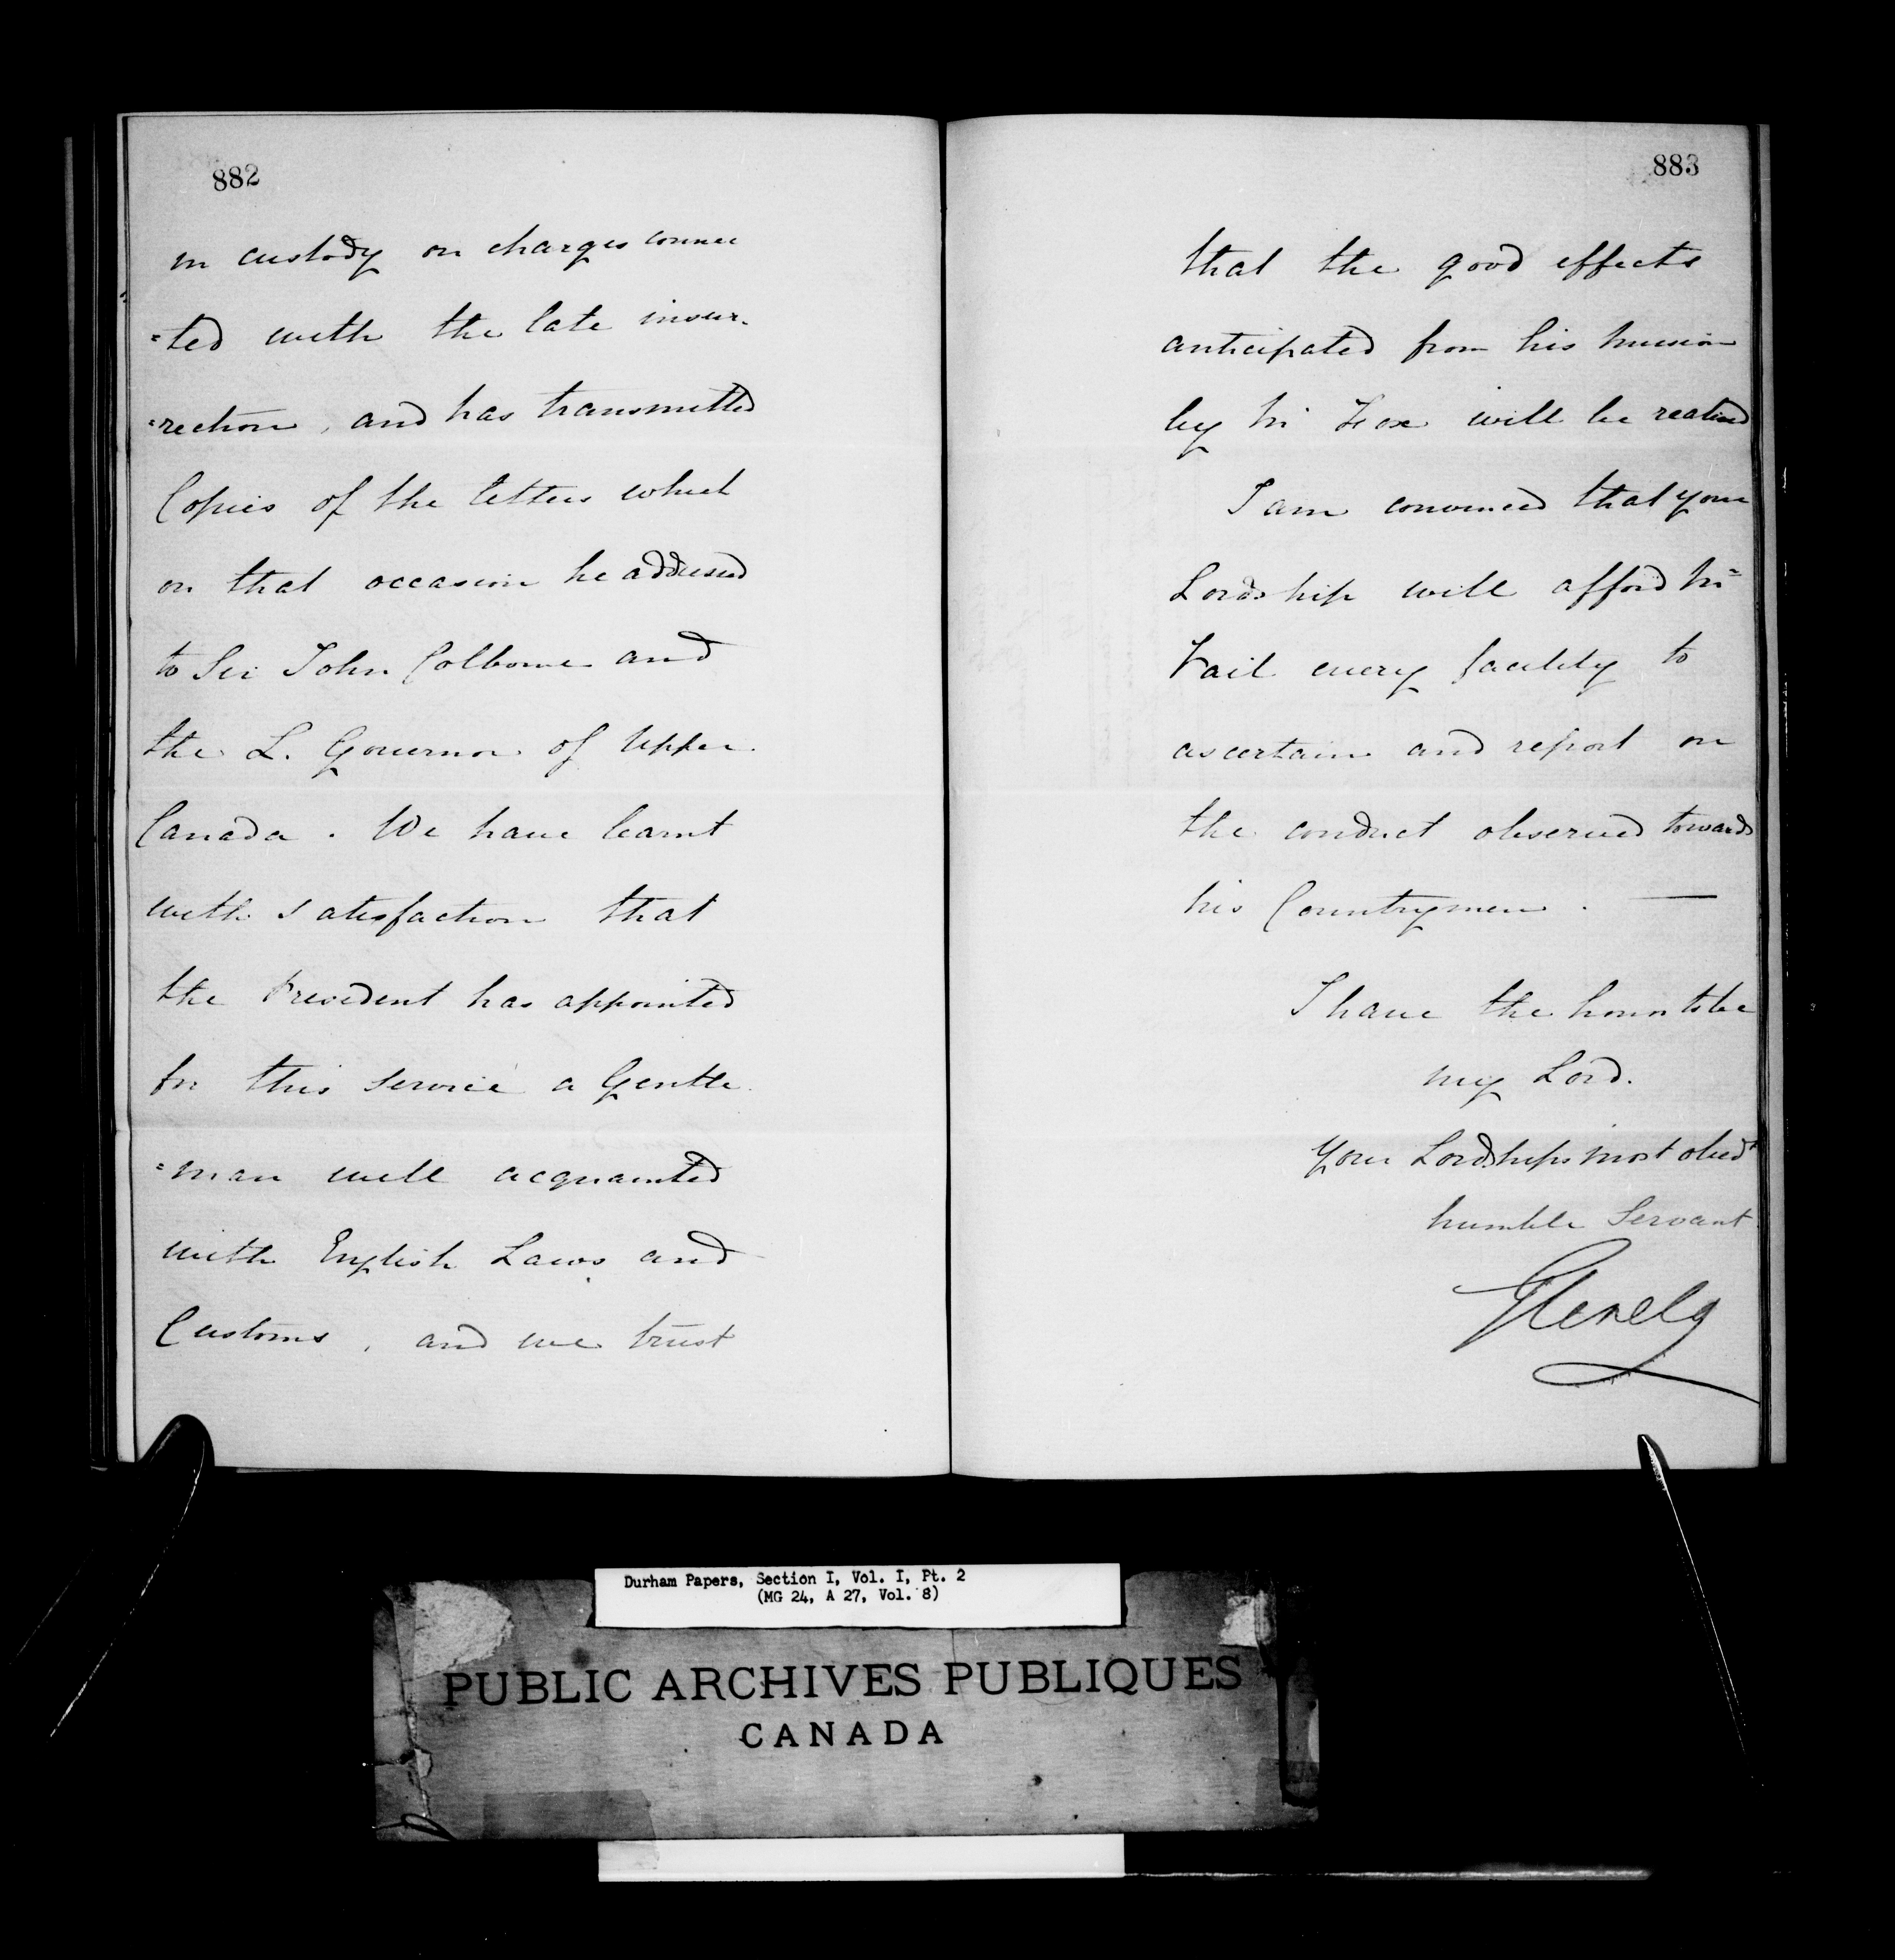 882
in custody on charges connec
=ted with the late insur-
=rection, and has transmitted
Copies of the letters which
on that occasion he addressed
to Sir John Colborne and
the L. Governor of Upper
Canada. We have learnt
with satisfaction that
the President has appointed
for this service a Gentle
=man well acquainted
with English Laws and
Customs, and we trust
883
that the good effects
anticipated from his mission
by Mr Fox will be realized
I am convinced that your
Lordship will afford Mr
Vail every facility to
ascertain and report on
the conduct observed towards
his Countrymen. —
I have the honor to be
My Lord.
Your Lordships most obedt
humble Servant
Glenelg
Durham Papers, Section I, Vol. I, Pt. 2
(MG 24, A 27, Vol. 8)
PUBLIC ARCHIVES PUBLIQUES
CANADA